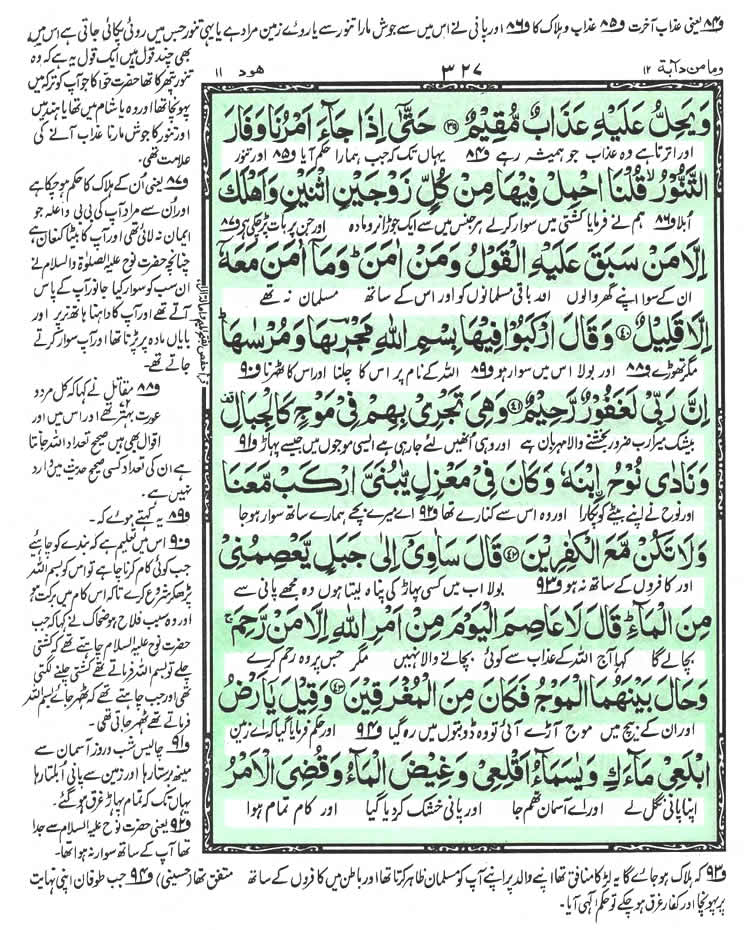 و۸۴ یعنی عذاب آخرت و۸۵ عذاب و ہلاک کا و۸۶ اور پانی نے اس میں سے جوش مارا تنور سے یا روئے زمین مراد ہے یا یہی تنور جس میں روٹی پکائی جاتی ہے اس میں
بھی چند قول ہیں ایک قول یہ ہے کہ وہ
تنور پتھر کا تھا حضرت حوا کا جو آپ کو ترکہ میں
پہونچا تھا اور وہ یا شام میں تھا یا ہند میں
اور تنور کا جوش مارنا عذاب آنے کی
علامت تھی۔
و۸۷ یعنی اُن کے ہلاک کا حکم ہوچکا ہے
اور اُن سے مراد آپ کی بی بی واعلہ جو
ایمان نہ لائی تھی اور آپ کا بیٹا کنعان ہے
چنانچہ حضرت نوح علیہ الصلوٰۃ والسلام نے
ان سب کو سوار کیا جانور آپ کے پاس
آتے تھے اور آپ کا داہنا ہاتھ نر پر اور
بایاں مادہ پر پڑتا تھا اور آپ سوار کرتے
جاتے تھے۔
و۸۸ مقاتل نے کہا کہ کل مرد و
عورت بہتّر تھے اور اس میں اور
اقوال بھی ہیں صحیح تعداد اللہ جانتا
ہے ان کی تعداد کسی صحیح حدیث میں وارد
نہیں ہے۔
و۸۹ یہ کہتے ہوئے کہ۔
و۹۰ اس میں تعلیم ہے کہ بندے کو چاہیئے
جب کوئی کام کرنا چاہے تو اس کو بسم اللہ
پڑھ کر شروع کرے تاکہ اس کام میں برکت ہو
اور وہ سبب فلاح ہو ضحاک نے کہا کہ جب
حضرت نوح علیہ السلام چاہتے تھے کہ کشتی
چلے تو بسم اللہ فرماتے تھے کشتی چلنے لگتی
تھی اور جب چاہتے تھے کہ ٹھہر جائے بسم اللہ
فرماتے تھے ٹھہر جاتی تھی۔
و۹۱ چالیس شب و روز آسمان سے
مینھ برستا رہا اور زمین سے پانی اُبلتا رہا
یہاں تک کہ تمام پہاڑ غرق ہوگئے۔
و۹۲ یعنی حضرت نوح علیہ السلام سے جدا
تھا آپ کے ساتھ سوار نہ ہوا تھا۔
وما من دآبة ۱۲
۳۲۷
هود ۱۱
وَيَحِلُّ عَلَيْهِ عَذَابٌ مُّقِيْمٌ ۝۳۹ حَتّٰۤى اِذَا جَآءَ اَمْرُنَا وَفَارَ
اور اترتا ہے وہ عذاب جو ہمیشہ رہے و۸۴ یہاں تک کہ جب ہمارا حکم آیا و۸۵ اور تنور
التَّنُّوْرُ ۙ قُلْنَا احْمِلْ فِيْهَا مِنْ كُلٍّ زَوْجَيْنِ اثْنَيْنِ وَاَهْلَكَ
اُبلا و۸۶ ہم نے فرمایا کشتی میں سوار کرلے ہر جنس میں سے ایک جوڑا نر و مادہ اور جن پر بات پڑچکی ہے و۸۷
اِلَّا مَنْ سَبَقَ عَلَيْهِ الْقَوْلُ وَمَنْ اٰمَنَ ؕ وَمَاۤ اٰمَنَ مَعَهٗۤ
ان کے سوا اپنے گھر والوں اور باقی مسلمانوں کو اور اس کے ساتھ مسلمان نہ تھے
اِلَّا قَلِيْلٌ ۝۴۰ وَقَالَ ارْكَبُوْا فِيْهَا بِسْمِ اللّٰهِ مَجْرٖىهَا وَمُرْسٰىهَا ؕ
مگر تھوڑے و۸۸ اور بولا اس میں سوار ہو و۸۹ اللہ کے نام پر اس کا چلنا اور اس کا ٹھرنا و۹۰
اِنَّ رَبِّيْ لَغَفُوْرٌ رَّحِيْمٌ ۝۴۱ وَهِيَ تَجْرِيْ بِهِمْ فِيْ مَوْجٍ كَالْجِبَالِ
بیشک میرا رب ضرور بخشنے والا مہربان ہے اور وہی اُنھیں لئے جا رہی ہے ایسی موجوں میں جیسے پہاڑ و۹۱
وَنَادٰى نُوْحُ ابْنَهٗ وَكَانَ فِيْ مَعْزِلٍ يّٰبُنَيَّ ارْكَبْ مَّعَنَا
اور نوح نے اپنے بیٹے کو پکارا اور وہ اس سے کنارے تھا و۹۲ اے میرے بچے ہمارے ساتھ سوار ہو جا
وَلَا تَكُنْ مَّعَ الْكٰفِرِيْنَ ۝۴۲ قَالَ سَاٰوِيْۤ اِلٰى جَبَلٍ يَّعْصِمُنِيْ
اور کافروں کے ساتھ نہ ہو و۹۳ بولا اب میں کسی پہاڑ کی پناہ لیتا ہوں وہ مجھے پانی سے
مِنَ الْمَآءِ ؕ قَالَ لَا عَاصِمَ الْيَوْمَ مِنْ اَمْرِ اللّٰهِ اِلَّا مَنْ رَّحِمَ ۚ
بچالے گا کہا آج اللہ کے عذاب سے کوئی بچانے والا نہیں مگر جس پر وہ رحم کرے
وَحَالَ بَيْنَهُمَا الْمَوْجُ فَكَانَ مِنَ الْمُغْرَقِيْنَ ۝۴۳ وَقِيْلَ يٰۤاَرْضُ
اور ان کے بیچ میں موج آڑے آئی تو وہ ڈوبتوں میں رہ گیا و۹۴ اور حکم فرمایا گیا کہ اے زمین
ابْلَعِيْ مَآءَكِ وَيٰسَمَآءُ اَقْلِعِيْ وَغِيْضَ الْمَآءُ وَقُضِيَ الْاَمْرُ
اپنا پانی نگل لے اور اے آسمان تھم جا اور پانی خشک کردیا گیا اور کام تمام ہوا
و۹۳ کہ ہلاک ہو جائے گا یہ لڑکا منافق تھا اپنے والد پر اپنے آپ کو مسلمان ظاہر کرتا تھا اور باطن میں کافروں کے ساتھ متفق تھا (حسینی) و۹۴ جب طوفان اپنی نہایت
پر پہونچا اور کفار غرق ہوچکے تو حکم الٰہی آیا۔